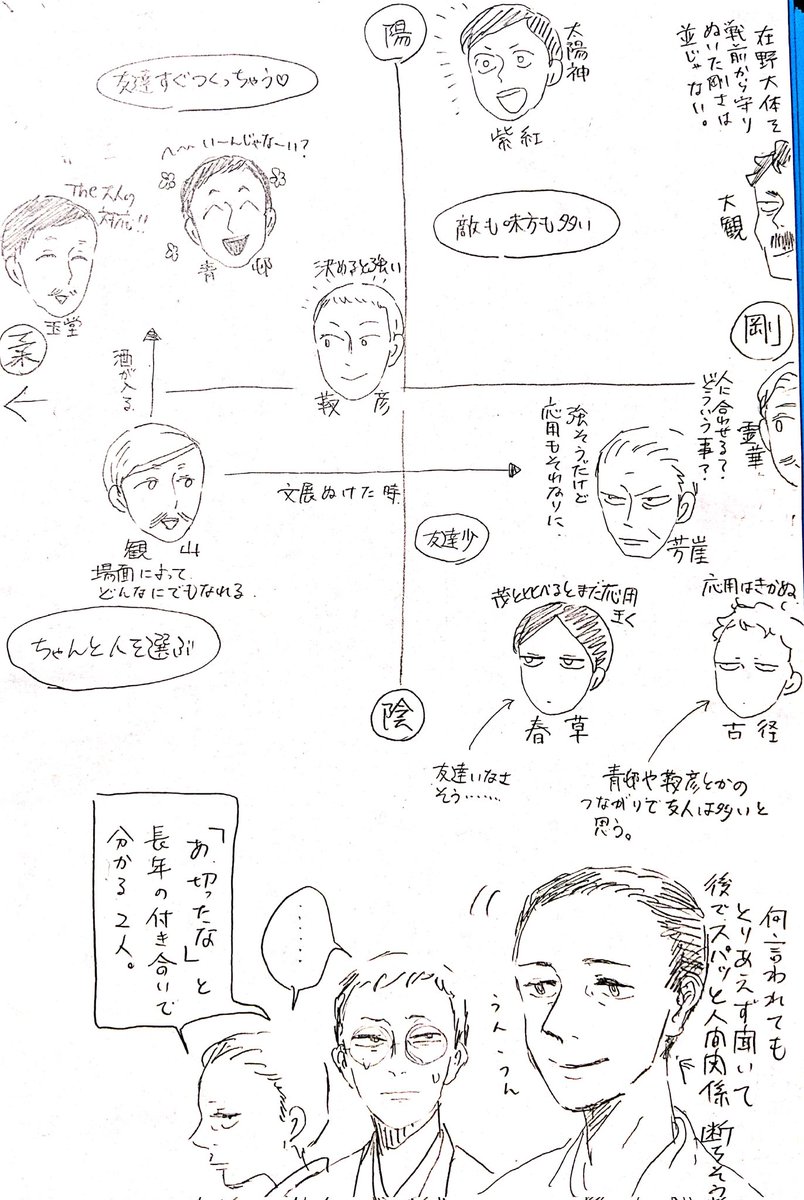 陽
太陽神
紫紅
在野大体を
戦前から守り
ぬいた剛さは
並じゃない。
大観
友達すぐつくっちゃう♡
へ〜〜いーんじゃなーい?
青邨
The 大人の
対応!!
玉堂
敵も味方も多い
決めると強い
靫彦
柔
剛
酒が入る
観山
場面によって
どんなにでもなれる
ちゃんと人を選ぶ
文展ぬけた時
友達少
人に合わせる?
どういう事?
霊華
強そうだけど
応用もそれなりに
芳崖
茂と比べるとまだ応用
きく
春草
友達いなさ
そう……
応用はきかぬ
古径
青邨や靫彦とかの
つながりで友人は多いと
思う。
陰
何言われても
とりあえず聞いて
後でスパッと人間関係
断ちそう
うん、うん
……
「あ、切ったな」と
長年の付き合いで
分かる2人。